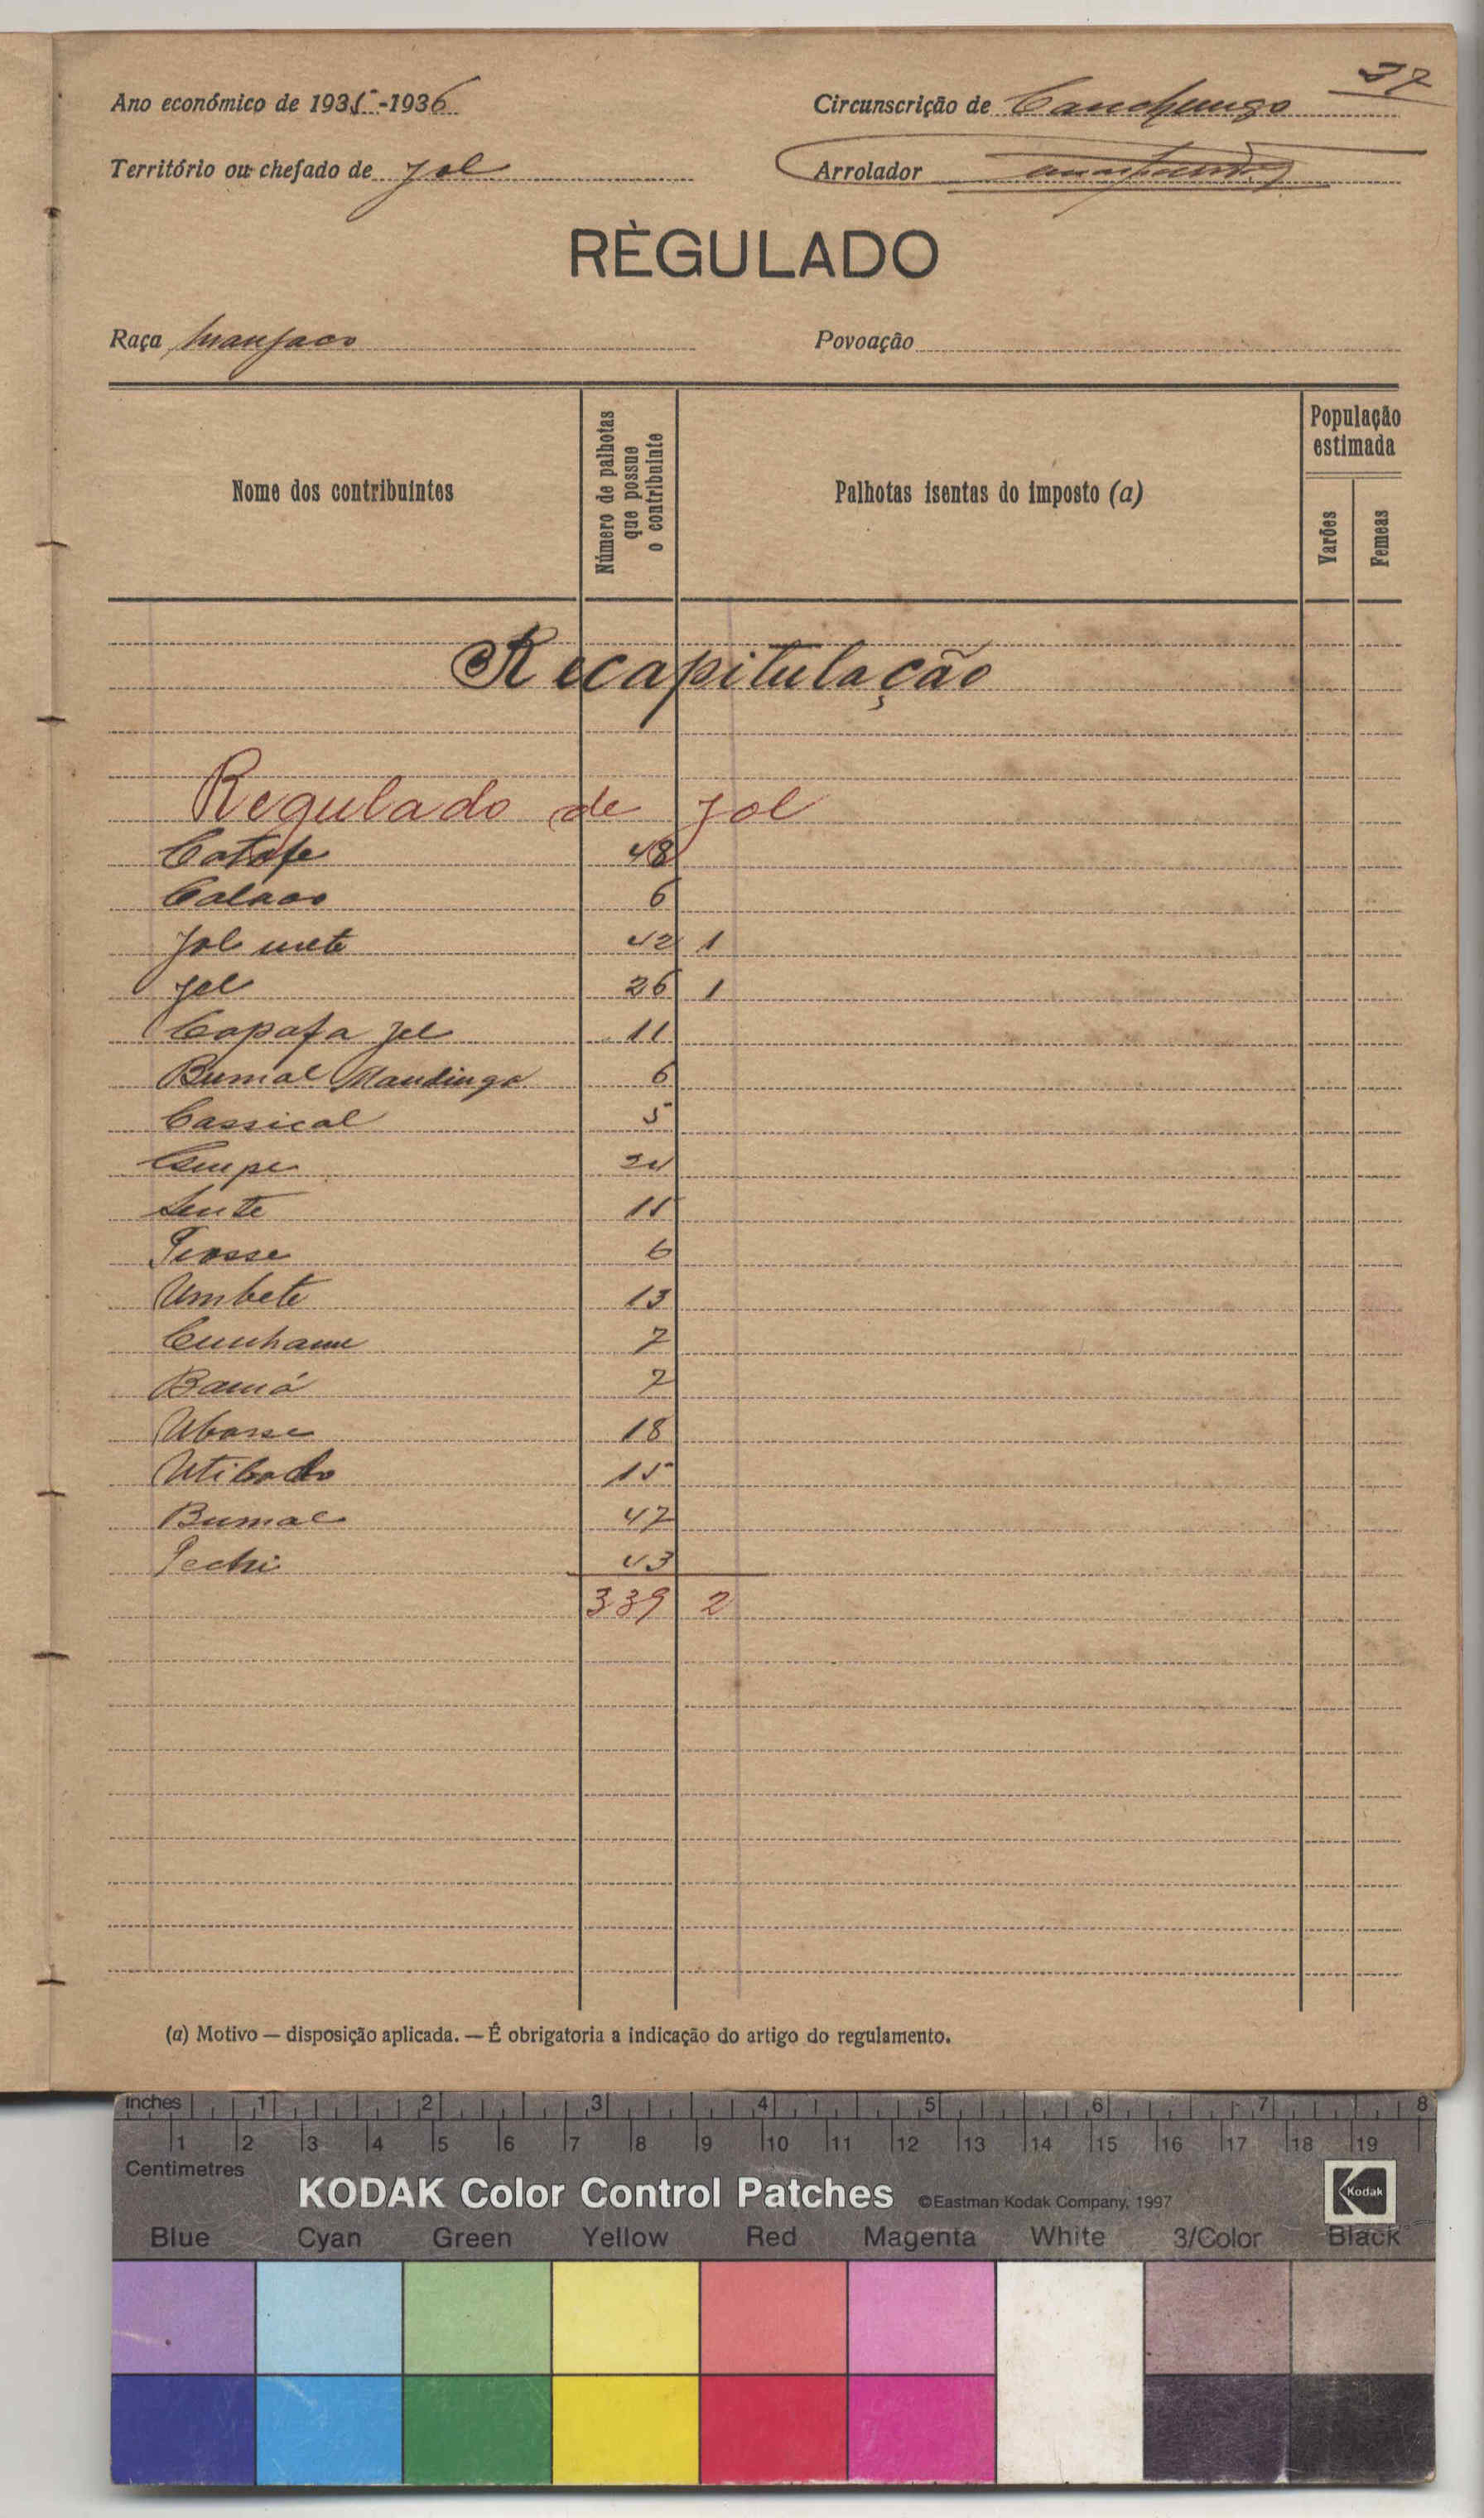 37
Ano económico de 1935-1936
Circunscrição de Canchungo
Território ou chefado de Jol
Arrolador
RÈGULADO
Raça Manjaco
Povoação
Nome dos contribuintes
Número de palhotas
que possue
o contribuinte
Palhotas isentas do imposto (a)
População
estimada
Varões
Femeas
Recapitulação
Regulado de Jol
Catafe 48
Calaos 6
Jol mete 42 1
Jel 26 1
Capafa Jel 11
Bumal Mandinga 6
Cassical 5
24
15
6
Umbete 13
Cunhame 7
Bamá 7
Ubasse 18
Utibado 15
Bumal 47
Pechi 43
339 2
(a) Motivo — disposição aplicada. — É obrigatoria a indicação do artigo do regulamento.
inches 1 2 3 4 5 6 7 8
1 2 3 4 5 6 7 8 9 10 11 12 13 14 15 16 17 18 19
Centimetres
KODAK Color Control Patches ©Eastman Kodak Company, 1997 Kodak
Blue Cyan Green Yellow Red Magenta White 3/Color Black